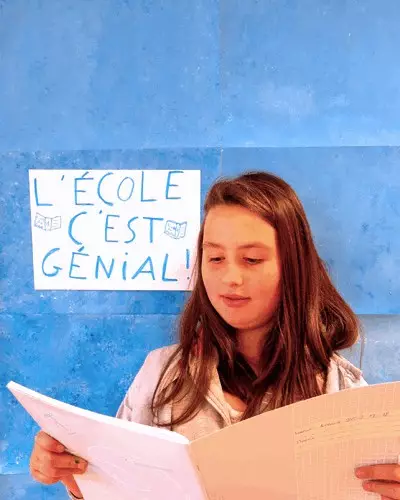 L'ÉCOLE
C'EST
GÉNiAL!